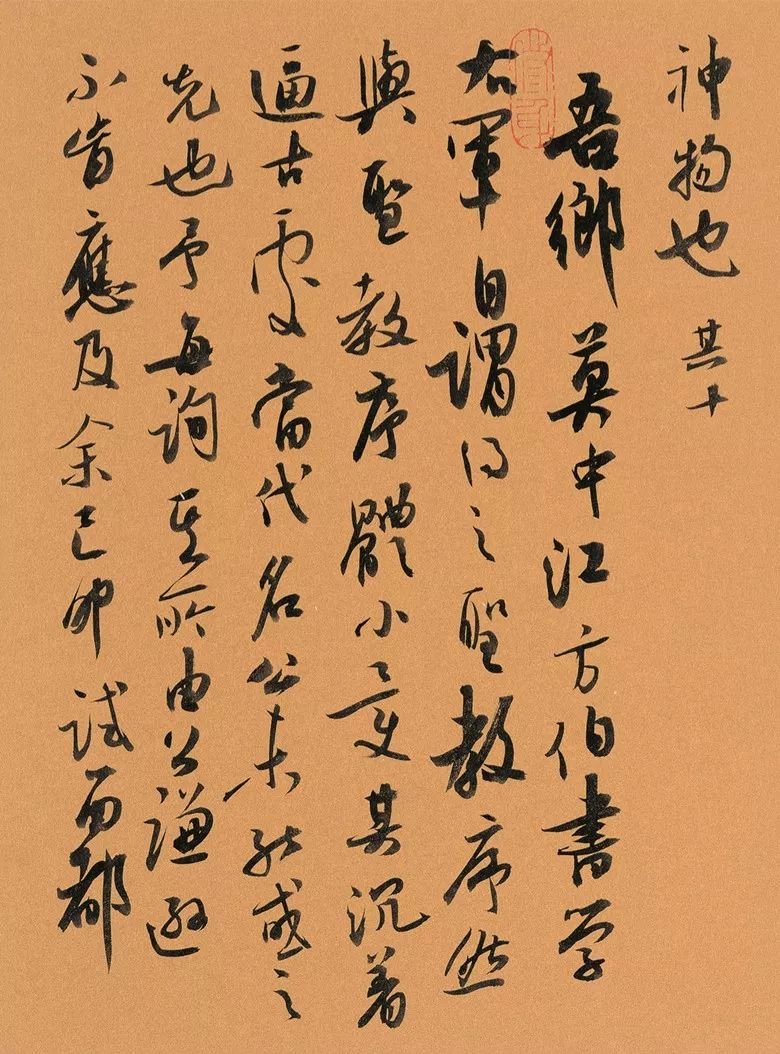 神物也 其十
吾鄉莫中江方伯書學
右軍自謂得之聖教序然
與聖教序體小變其沉着
逼古處當代名公未能或之
先也予每詢其所由公謙遜
不肯應及余己卯試留都